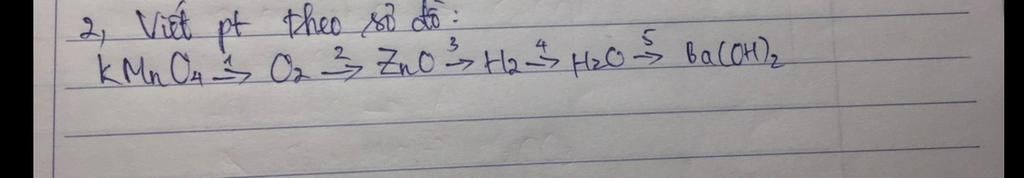 2, Viết pt theo sơ đồ:
KMnO₄ →¹ O₂ →² ZnO →³ H₂ →⁴ H₂O →⁵ Ba(OH)₂